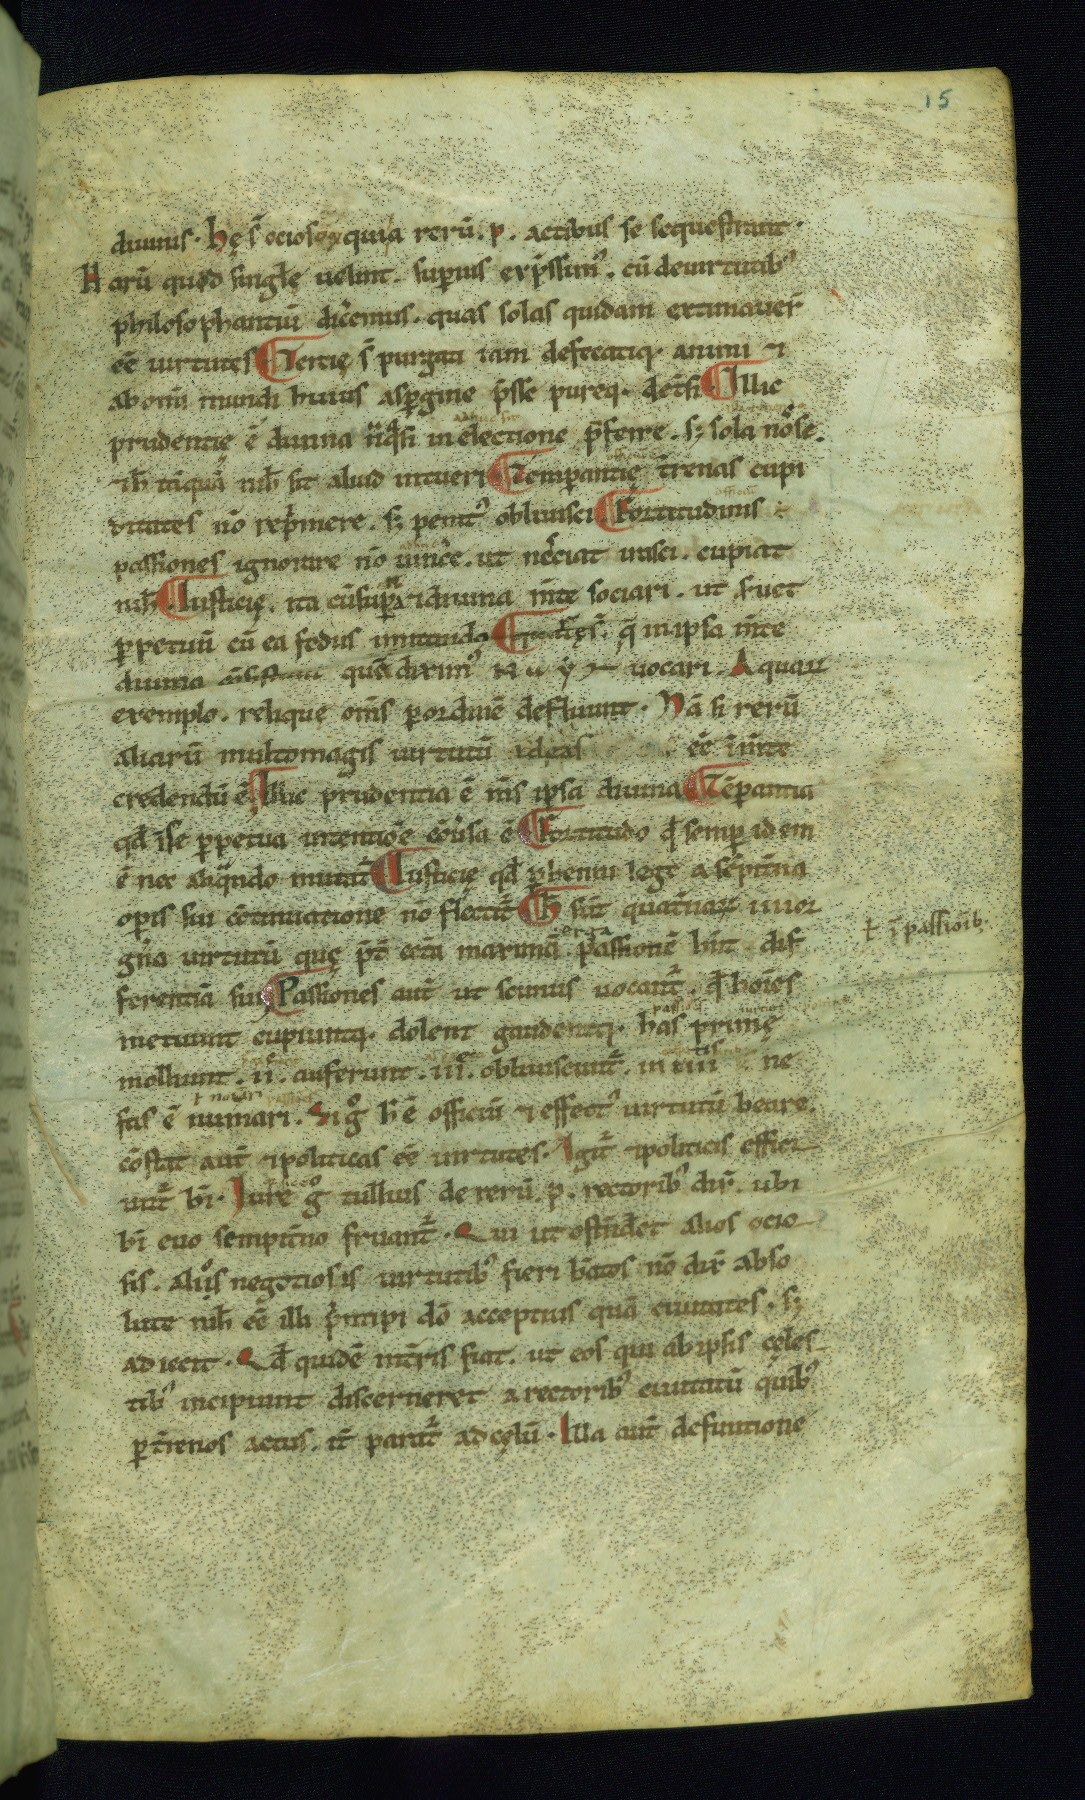 15
diuinis. hę s̄ ociosoꝝ quia rerū .p. actibus se sequestrant.
Harū quod singlę uelint. superius exp̄ssimꝰ. cū deuirtutibꝰ
philosophantiū dic̄emus. quas solas quidam extimauer̄
eē uirtutes Tertię s̄ purgati iam defecatiq. animi ⁊
ab om̄i mundi huius asp̄gine p̄sse pureq. det̄si Illic
prudentię ē diuina n̄ q̄si in electione p̄ferre. sꝫ sola nosse.
⁊ h̄ tāquā nih̄ sit aliud intueri Temperantię t̄renas cupi
ditates nō rep̄mere. sꝫ penitꝰ obliuisci Fortitudinis
passiones ignorare nō uinc̄e. ut nesciat irasci. cupiat
nih̄ Iusticię. ita cū sup̄na ⁊ diuina m̄te sociari. ut seruet
ꝑpetuū cū ea fedus imitando Quartęs̄. q̄ in ipsa m̄te
diuina quā diximꝰ uocari. A quaꝝ
exemplo. relique om̄s ꝑ ordinē defluunt. Nā si rerū
aliarū multomagis uirtutū ideas eē ī m̄te
credendū ē Illic prudentia ē m̄s ipsa diuina Tēperantia
qd̄ ī se ꝑpetua intentiōe cōuersa ē Fortitudo qd̄ semꝑ idem
ē nec aliq̄ndo mutat̄ Iusticię qd̄ ꝑhenni lege a sēpit̄na
opis sui cōtinuatione nō flectit̄ H̄ sūt quat̄naꝝ iiiior
gn̄a uirtutū quę p̄t cet̄a maximā erga passionē hn̄t dif
ferentiā sui Passiones aūt ut scimus uocant̄. qd̄ hoīes
ł ī passionib.
metuunt cupiuntq. dolent gaudentq. has primę
molliunt. iie. auferunt. iiie. obliuiscunt̄. in iiiitis ne
ł notari
fas ē numari. Si gͦ h̄ ē officiū ⁊ effectꝰ uirtutū beare.
cōstat aūt ⁊ politicas eē uirtutes. Igit̄ ⁊ politicis effici
unt̄ bī. Iure gͦ tullius de rerū .p. rectoribꝰ dix̄. ubi
bī euo sempit̄no fruant̄. Qui ut ostn̄deret alios ocio
sis. alios negotiosis uirtutibꝰ fieri b̄atos nō dix̄ abso
lute nih̄ eē illi p̄ncipi dō acceptius quā ciuitates. sꝫ
adiecit. Qd̄ quidē int̄ris fiat. ut eos qui ab ipsis cęles
tibꝰ incipiunt discerneret a rectoribꝰ ciuitatū quibꝰ
ꝑ t̄renos actus. it̄ parat̄ ad cęlū. Illa aūt definitione